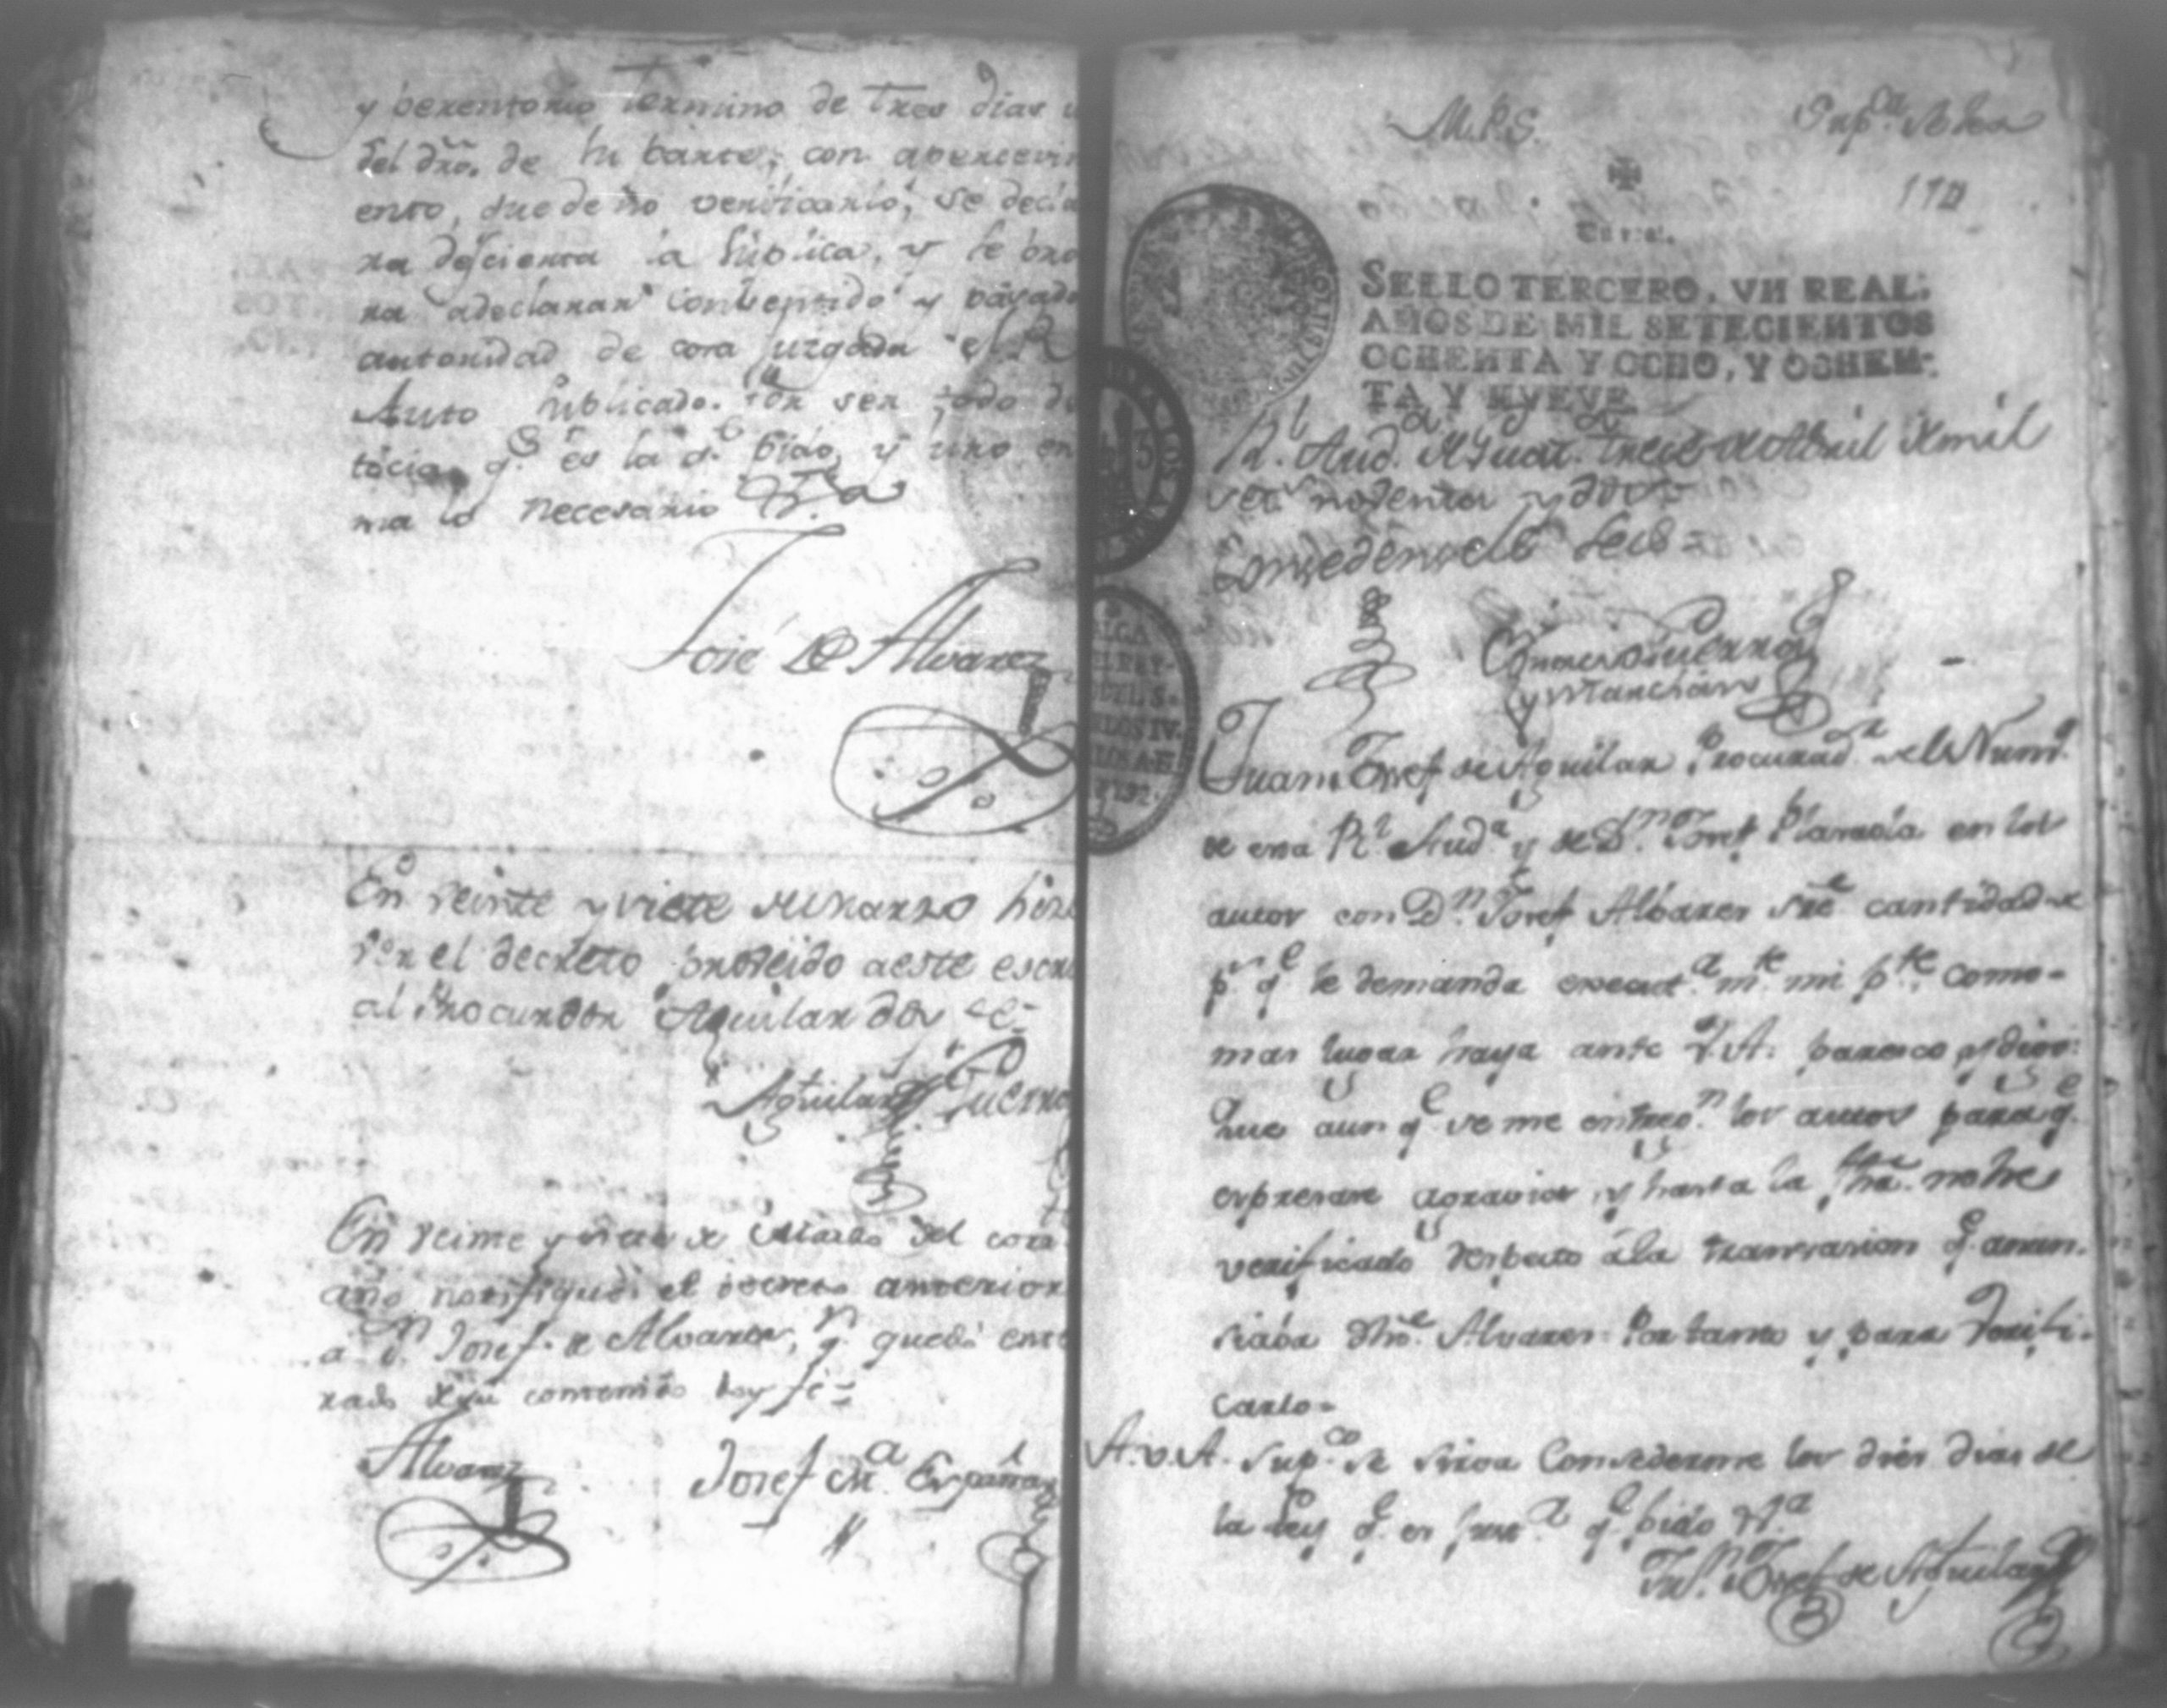 y perentorio termino de tres dias u
del dro. de su parte; con apercevim
ento, que de no verificarlo, se decla
ra decierta la suplica, y se pro
ra a declarar consentido y pasado
autoridad de cosa juzgada el R
Auto suplicado. Por ser todo de
ticia, q.e es la q.e pido, y juro en
ma lo necesario &.a
José de Alvarez
En veinte y siete de marzo hize
ver el decreto proveido a este escri
al Procurador Aguilar doy fe=
Aguilar Guerra
En veinte y siete de Marzo del corr.
año notifiqué el decreto anterior
a D.n Josef de Alvarez, q.n quedó ente
rado de su contenido doy fé=
Alvarez
Josef M.a España
M.P.S.
Sup.ca
Un real.
SELLO TERCERO, VN REAL;
AÑOS DE MIL SETECIENTOS
OCHENTA Y OCHO, Y OCHEN-
TA Y NVEVE
R.l Aud.a trece de Abril de mil
set.s noventa y dos
Concedensele seis=
Guerra
y Marchan
Juan Josef de Aguilar Procurad.or del Num.o
de esta R.l Aud.a y de D.n Josef Plaraola en los
autos con D.n Josef Albarez s̃re cantidad de
p.s q.e le demanda executa.m.te mi p.te como
mas lugar haya ante V.A. paresco y digo:
Que aun q.e se me entreg.n los autos para q.e
expresare agravios, y hasta la fha. no he
verificado respecto á la transasion q.e anun-
siaba dho. Alvarez. Por tanto y para verifi-
carlo=
A.V.A. Sup.co se sirva Consederme los dies dias de
la Ley q.e es just.a q.e pido &.a
Ju.n Josef de Aguilar